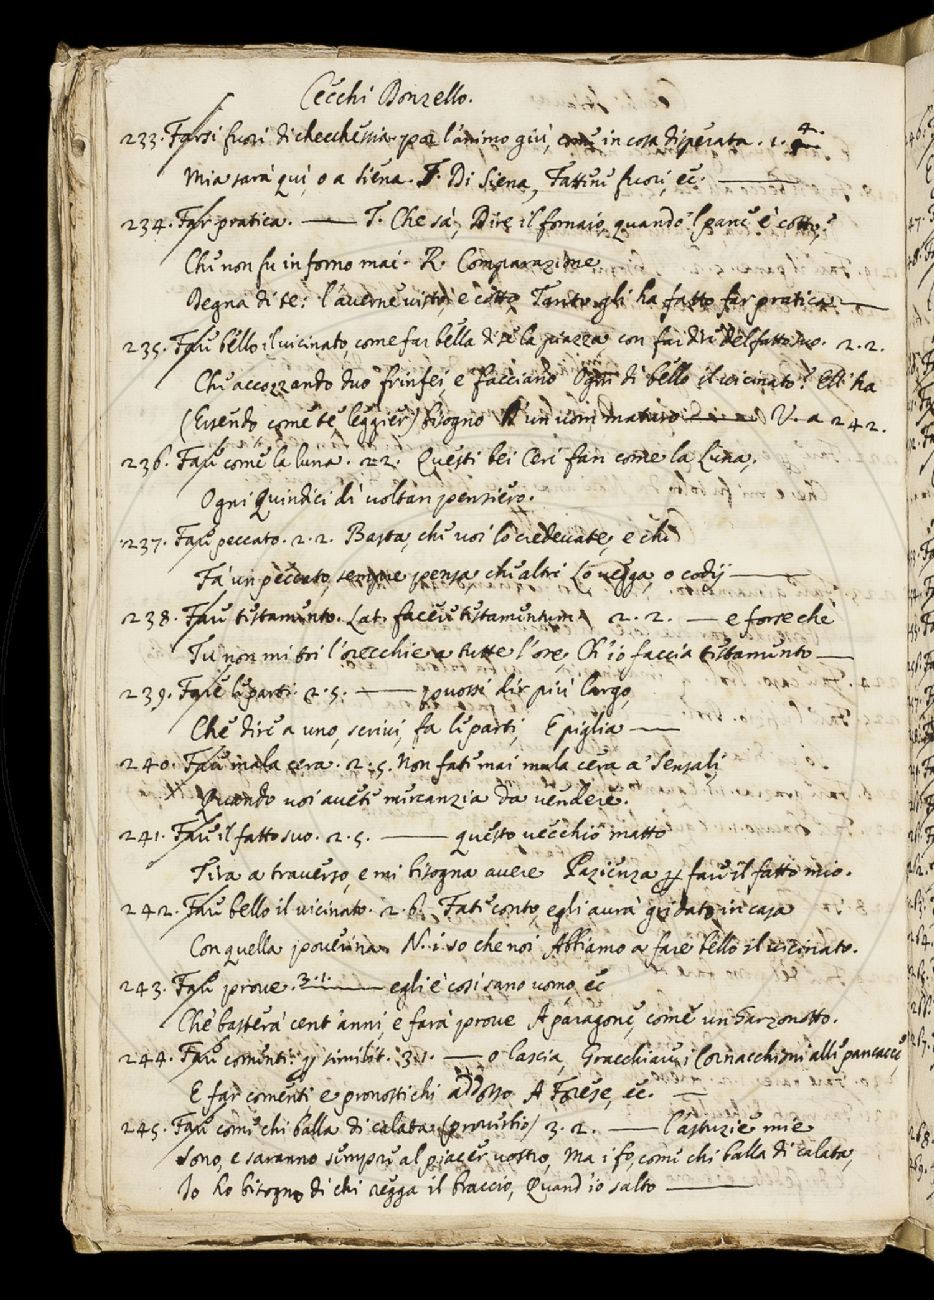 Cecchi Donzello.
233. Farsi fuori di checchessia por l'animo giù, come in cosa disperata. 1. 4.
Mia sarà quì, o a Siena. F. Di Siena, Fattine fuori, ec.
234. Far pratica. — T. Che sà, Dire il fornaio, quando 'l pane è cotto,
Chi non fu in forno mai. R. Comparazione
Degna di te: l'averne visto, e cotto Tanto gli ha fatto far pratica —
235. Fare bello il vicinato, come far bella di se la piazza con far dire del fatto suo. 2. 2.
Chi accozzando duo frinfei e facciano Ogni dì bello il vicinato? Ell'ha
(Essendo come te leggier) bisogno D'un uom maturo — V. a 242.
236. Fare come la luna. 2.2. Questi bei Ceri fan come la Luna,
Ogni Quindici dì voltan pensiero.
237. Fare peccato. 2. 2. Basta, che voi lo credevate, e chi
Fà un peccato, sempre pensa, che altri Lo vegga, o codij —
238. Fare testamento. Lat. facere testamentum 2. 2. — e forse che
Tu non mi tri l'orecchie a tutte l'ore Ch'io faccia testamento —
239. Fare le parti. 2. 5. — puossi dir più largo,
Che dire a uno, scrivi, fa le parti, E piglia —
240. Fare mala cera. 2. 5. Non fate mai mala cera a' Sensali,
Quando voi avete mercanzia da vendere.
241. Fare il fatto suo. 2. 5. — questo vecchio matto
Tira a traverso, e mi bisogna avere Pazienza p fare il fatto mio.
242. Fare bello il vicinato. 2. 6. Fate conto, egli avrà gridato in casa
Con quella poverina. N. i. so che noi Abbiamo a fare bello il vicinato.
243. Fare prove. 3. 1. — egli è così sano uomo ec
Che basterà cent'anni, e farà prove A paragone, come un Garzonotto.
244. Fare comenti. p similit. 3 1. — o lascia, Gracchiare i Cornacchioni alle pancacce,
E far comenti e pronostichi addosso A Forese, ec. —
245. Fare come chi balla di calata (proverbio) 3. 2. — l'astuzie mie
Sono, e saranno sempre al piacer vostro, Ma i fo, come chi balla di calata,
Io ho bisogno di chi regga il braccio, Quand'io salto —